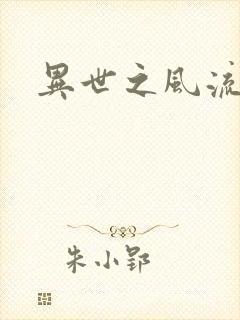 異世之風流
朱小郢